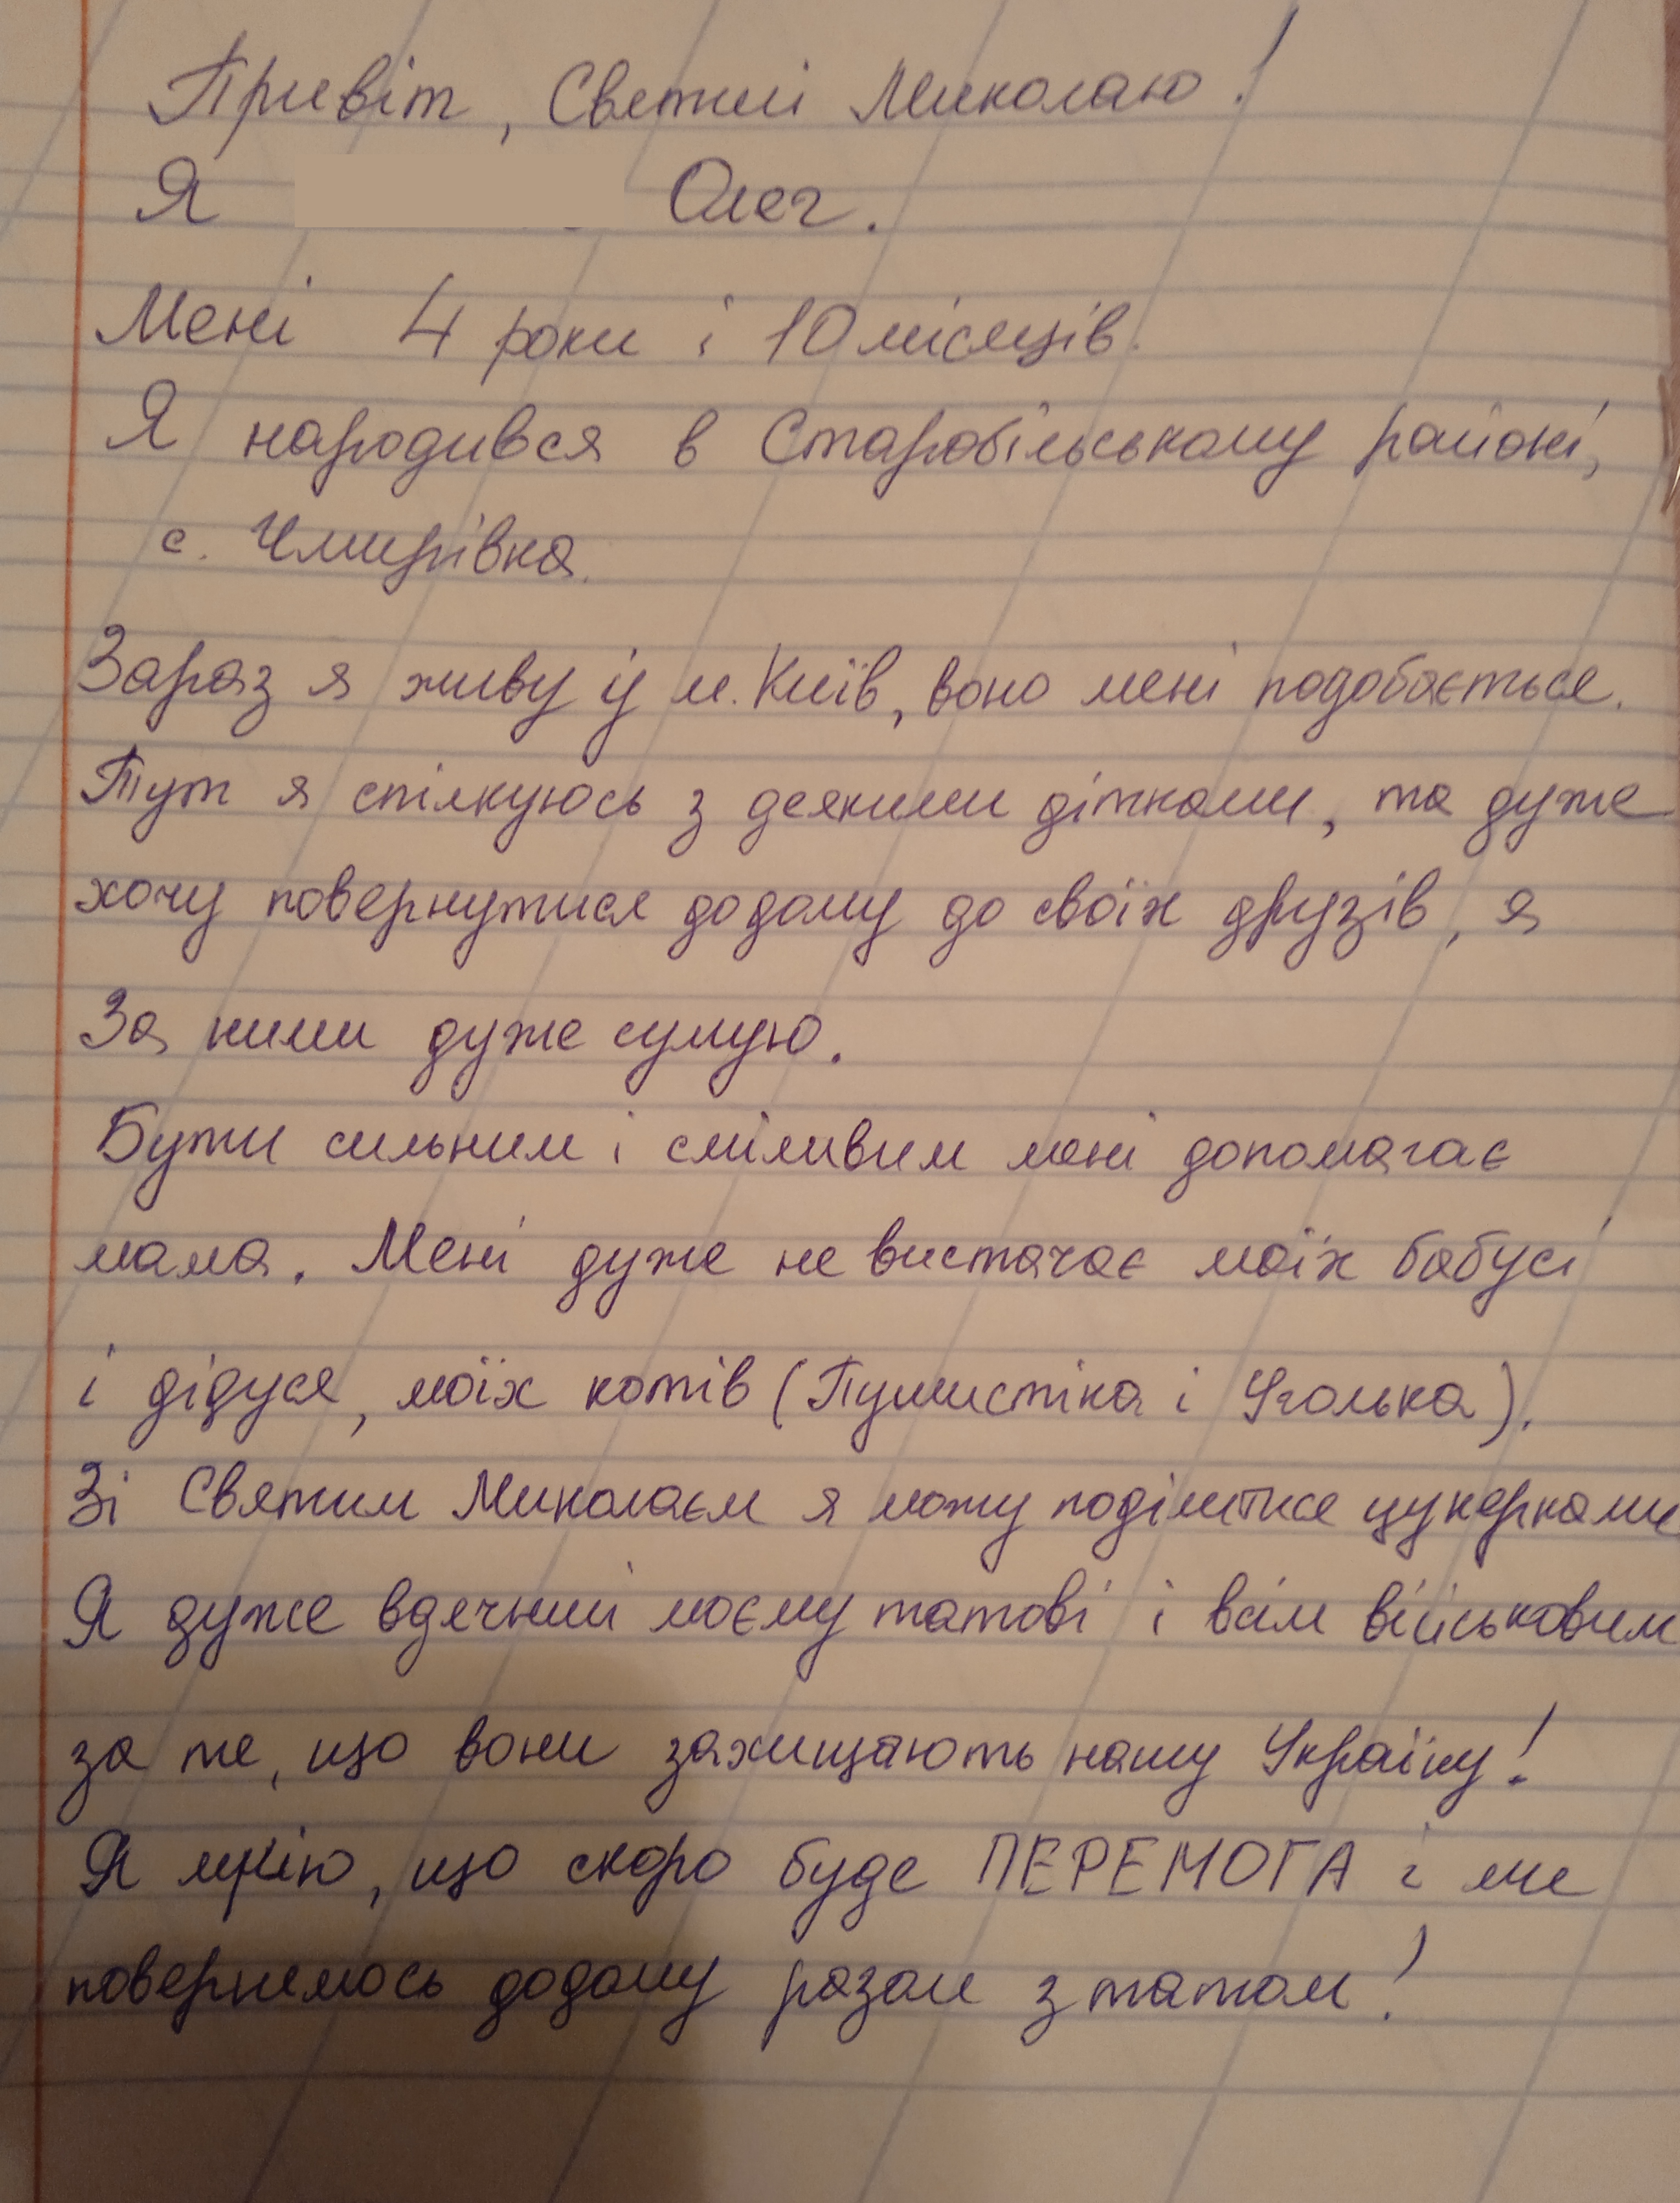 Привіт, Святий Миколаю!
Я Олег.
Мені 4 роки і 10 місяців.
Я народився в Старобільському районі,
с. Чмирівка.
Зараз я живу у м. Київ, воно мені подобається.
Тут я спілкуюсь з деякими дітками, та дуже
хочу повернутися додому до своїх друзів, я
За ними дуже сумую.
Бути сильним і сміливим мені допомагає
мама. Мені дуже не вистачає моїх бабусі
і дідуся, моїх котів (Пушистіка і Уголька).
Зі Святим Миколаєм я можу поділитися цукерками
Я дуже вдячний моєму татові і всім військовим
за те, що вони захищають нашу Україну!
Я мрію, що скоро буде ПЕРЕМОГА і ми
повернемось додому разом з татом!